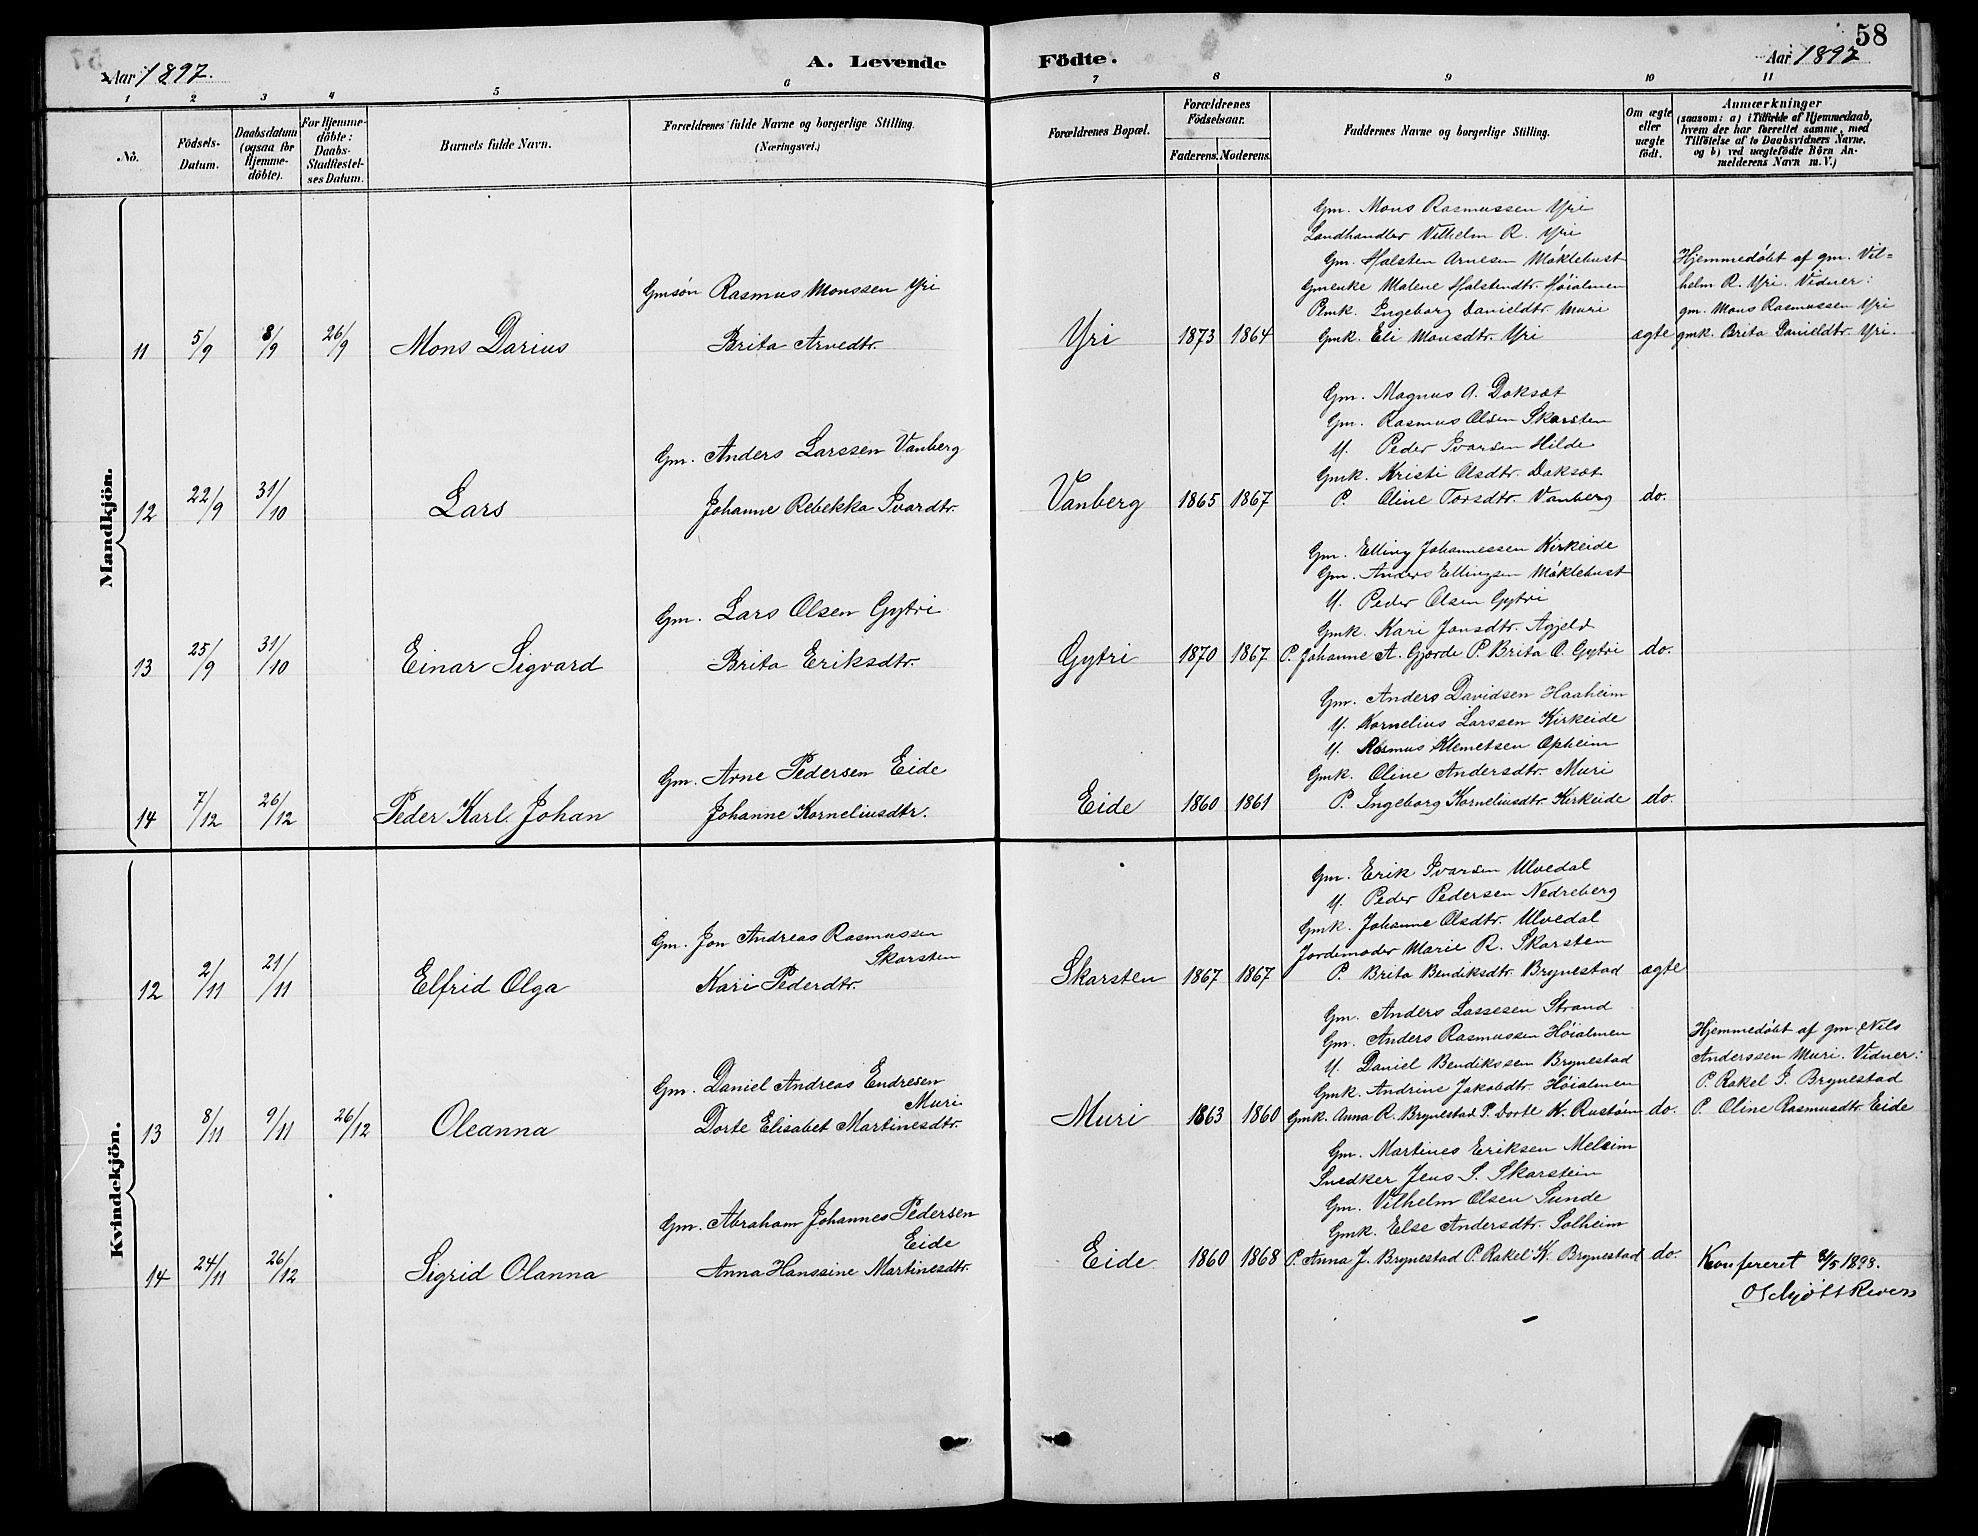 58
Aar 1897.
A. Levende Födte.
Aar 1897
1 2 3 4 5 6 7 8 9 10 11
No.
Födsels-Datum.
Daabsdatum (ogsaa for Hjemme-döbte).
For Hjemme-döbte: Daabs-Stadfæstel-ses Datum.
Barnets fulde Navn.
Forældrenes fulde Navne og borgerlige Stilling.
(Næringsvei.)
Forældrenes Bopæl.
Forældrenes Födselsaar.
Faderens. Moderens.
Faddernes Navne og borgerlige Stilling.
Om ægte eller uægte födt.
Anmærkninger
(saasom: a) i Tilfælde af Hjemmedaab,
hvem der har forrettet samme, med
Tilföielse af to Daabsvidners Navne,
og b) ved uægtefödte Börn An-
melderens Navn m. V.)
Mandkjön.
11 5/9 8/9 26/9 Mons Darius
Gmsøn Rasmus Monssen Yri
Brita Arnedtr.
Yri 1873 1864
Gm. Mons Rasmussen Yri
Landhandler Vilhelm R. Yri
Gm. Halsten Arnesen Møklebust
Gmenke Malene Halstendtr. Høialmen
Pmk. Ingeborg Danieldtr. Muri
Gmk. Eli Monsdtr. Yri
ægte
Hjemmedøbt af gm. Vil=
helm R. Yri. Vidner:
gm. Mons Rasmussen Yri
gmk. Brita Danieldtr. Yri.
12 22/9 31/10 Lars
Gm. Anders Larssen Vanberg
Johanne Rebekka Ivardtr.
Vanberg 1865 1867
Gm. Magnus A. Doksæt
Gm. Rasmus Olsen Skarsten
U. Peder Ivarsen Hilde
Gmk. Kristi Olsdtr. Doksæt
P. Oline Torsdtr. Vanberg
do.
13 25/9 31/10 Einar Sigvard
Gm. Lars Olsen Gytri
Brita Eriksdtr.
Gytri 1870 1867
Gm. Elling Johannessen Kirkeide
Gm. Anders Ellingsen Møklebust
U. Peder Olsen Gytri
Gmk. Kari Jonsdtr. Agjeld
P. Johanne A. Gjørde P. Brita O. Gytri
do.
14 7/12 26/12 Peder Karl Johan
Gm. Arne Pedersen Eide
Johanne Korneliusdtr.
Eide 1860 1861
Gm. Anders Davidsen Haaheim
U. Kornelius Larssen Kirkeide
U. Rasmus Klemetsen Opheim
Gmk. Oline Andersdtr. Muri
P. Ingeborg Korneliusdtr. Kirkeide
do.
Kvindekjön.
12 2/11 21/11 Elfrid Olga
Gm. Jon Andreas Rasmussen
Skarsten
Kari Pederdtr.
Skarsten 1867 1867
Gm. Erik Ivarsen Ulvedal
U. Peder Pedersen Nedreberg
Gmk. Johanne Olsdtr. Ulvedal
Jordemoder Marie R. Skarsten
P. Brita Bendiksdtr. Brynestad
ægte
13 8/11 9/11 26/12 Oleanna
Gm. Daniel Andreas Endresen
Muri
Dorte Elisabet Martinesdtr.
Muri 1863 1860
Gm. Anders Lassesen Strand
Gm. Anders Rasmussen Høialmen
U. Daniel Bendikssen Brynestad
Gmk. Andrine Jakobdtr. Høialmen
Gmk. Anna R. Brynestad P. Dorte K. Rustøen
do.
Hjemmedøbt af gm. Nils
Anderssen Muri. Vidner:
P. Rakel J. Brynestad
P. Oline Rasmusdtr. Eide
14 24/11 26/12 Sigrid Olanna
Gm. Abraham Johannes Pedersen
Eide
Anna Hanssine Martinesdtr.
Eide 1860 1868
Gm. Martines Eriksen Meleim
Snedker Jens S. Skarstein
Gm. Vilhelm Olsen Sunde
Gmk. Else Andersdtr. Solheim
P. Anna J. Brynestad P. Rakel K. Brynestad
do.
Konfereret 8/5 1898.